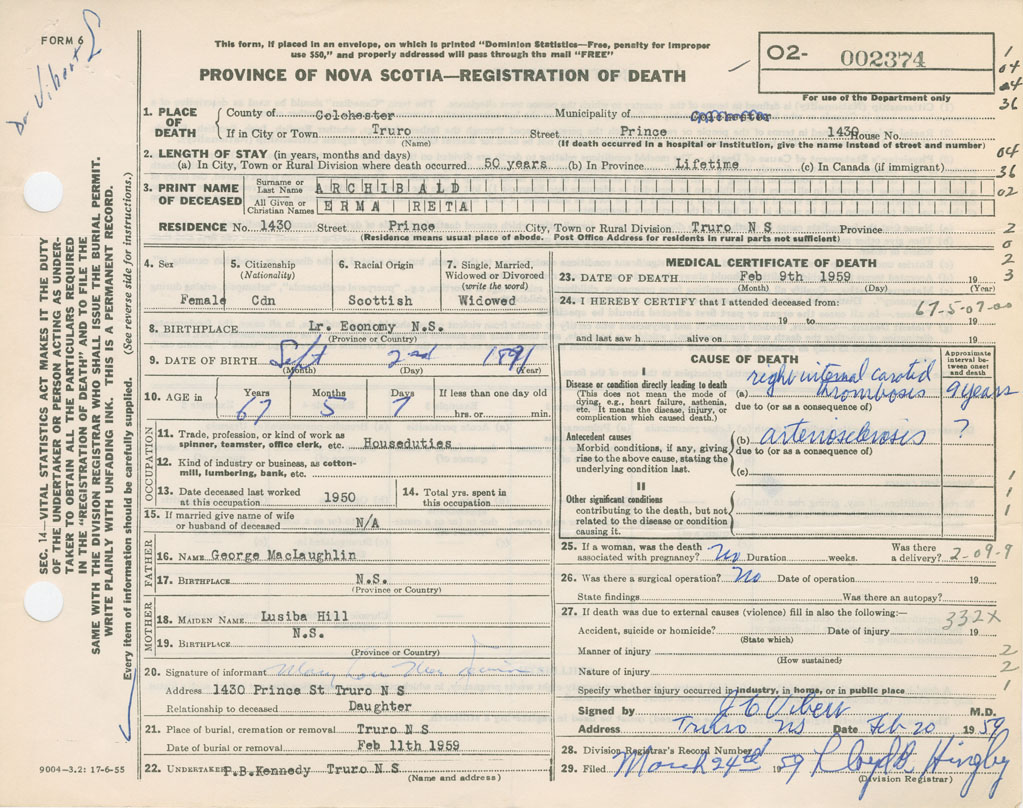 FORM 6
Dr Vibert
This form, if placed in an envelope, on which is printed "Dominion Statistics—Free, penalty for improper
use $50," and properly addressed will pass through the mail "FREE"
PROVINCE OF NOVA SCOTIA—REGISTRATION OF DEATH
O2- 002374
For use of the Department only
1
04
04
36
04
36
02
2
0
2
3
SEC. 14—VITAL STATISTICS ACT MAKES IT THE DUTY
OF THE UNDERTAKER OR PERSON ACTING AS UNDER-
TAKER TO OBTAIN ALL THE PARTICULARS REQUIRED
IN THE "REGISTRATION OF DEATH" AND TO FILE THE
SAME WITH THE DIVISION REGISTRAR WHO SHALL ISSUE THE BURIAL PERMIT.
WRITE PLAINLY WITH UNFADING INK. THIS IS A PERMANENT RECORD.
Every item of information should be carefully supplied. (See reverse side for instructions.)
1. PLACE OF DEATH County of Colchester Municipality of Colchester
If in City or Town Truro Street Prince 1430 House No.
(Name) (If death occurred in a hospital or institution, give the name instead of street and number)
2. LENGTH OF STAY (in years, months and days)
(a) In City, Town or Rural Division where death occurred 50 years (b) In Province Lifetime (c) In Canada (if immigrant)
3. PRINT NAME OF DECEASED Surname or Last Name ARCHIBALD
All Given or Christian Names ERMA RETA
RESIDENCE No. 1430 Street Prince City, Town or Rural Division Truro N S Province
(Residence means usual place of abode. Post Office Address for residents in rural parts not sufficient)
4. Sex Female
5. Citizenship (Nationality) Cdn
6. Racial Origin Scottish
7. Single, Married, Widowed or Divorced (write the word) Widowed
8. BIRTHPLACE Lr. Economy N.S.
(Province or Country)
9. DATE OF BIRTH Sept 2nd 1891
(Month) (Day) (Year)
10. AGE in Years Months Days If less than one day old
67 5 7 hrs. or min.
OCCUPATION
11. Trade, profession, or kind of work as
spinner, teamster, office clerk, etc. Houseduties
12. Kind of industry or business, as cotton-
mill, lumbering, bank, etc.
13. Date deceased last worked at this occupation 1950
14. Total yrs. spent in this occupation
15. If married give name of wife
or husband of deceased N/A
FATHER
16. NAME George MacLaughlin
17. BIRTHPLACE N.S.
(Province or Country)
MOTHER
18. MAIDEN NAME Lusiba Hill
19. BIRTHPLACE N.S.
(Province or Country)
20. Signature of informant Mary Lou
Address 1430 Prince St Truro N S
Relationship to deceased Daughter
21. Place of burial, cremation or removal Truro N S
Date of burial or removal Feb 11th 1959
22. UNDERTAKER P.B.Kennedy Truro N S
(Name and address)
9004-3.2: 17-6-55
MEDICAL CERTIFICATE OF DEATH
23. DATE OF DEATH Feb 9th 1959 19
(Month) (Day) (Year)
24. I HEREBY CERTIFY that I attended deceased from: 67-5-07-00
19 to 19
and last saw h alive on 19
CAUSE OF DEATH
Approximate interval between onset and death
I
Disease or condition directly leading to death
(This does not mean the mode of
dying, e.g., heart failure, asthenia,
etc. It means the disease, injury, or
complication which caused death.)
(a) right internal carotid thrombosis 9 years
due to (or as a consequence of)
Antecedent causes
Morbid conditions, if any, giving
rise to the above cause, stating the
underlying condition last.
(b) arteriosclerosis ?
due to (or as a consequence of)
(c)
II
Other significant conditions
contributing to the death, but not
related to the disease or condition
causing it.
1
1
1
25. If a woman, was the death
associated with pregnancy? No Duration weeks. Was there a delivery? 2-09-9
26. Was there a surgical operation? No Date of operation 19
State findings Was there an autopsy?
27. If death was due to external causes (violence) fill in also the following:— 332X
Accident, suicide or homicide? Date of injury 19
(State which)
Manner of injury 2
(How sustained)
Nature of injury 2
Specify whether injury occurred in industry, in home, or in public place 1
Signed by J C Vibert M.D.
Address Truro NS Date Feb 20 1959
28. Division Registrar's Record Number
29. Filed March 24th 1959 Lloyd B Hingley
(Division Registrar)